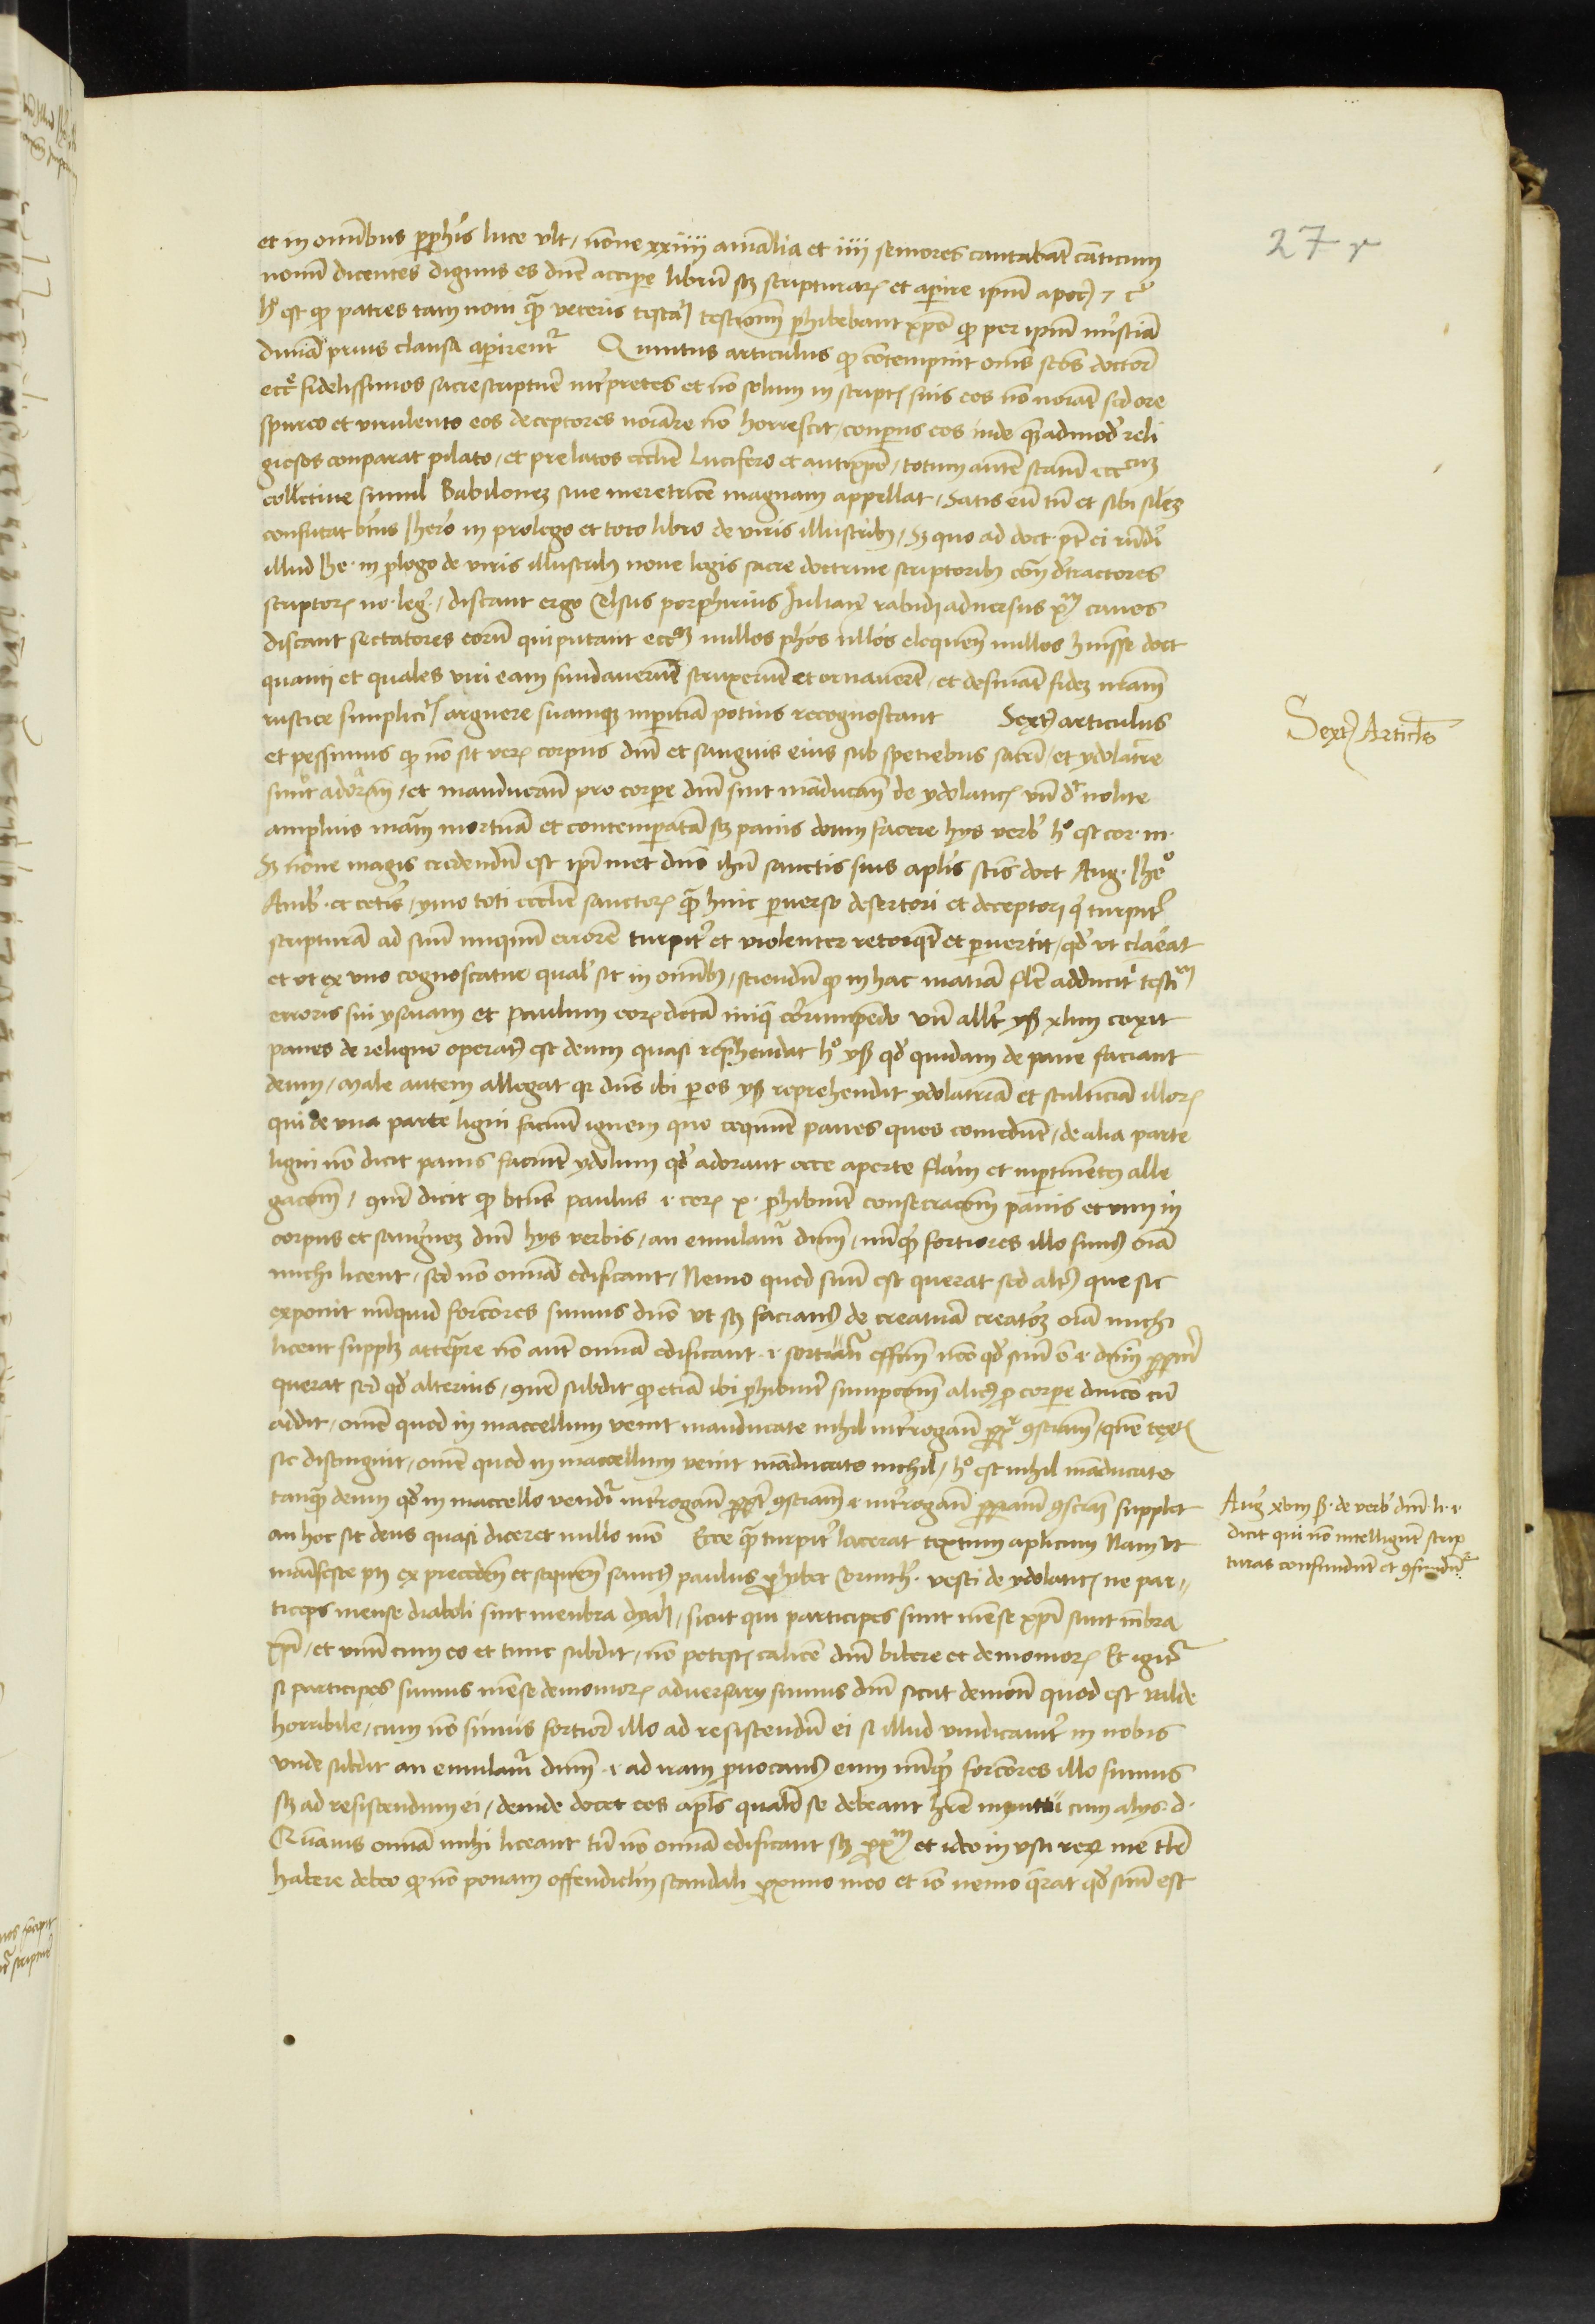 27 r
et in omnibus prophis luce vlt / nonne xxiiii animalia et iiii seniores cantabant canticum
nouum dicentes dignus es dne accipe librum scz scripturarum et aperire ipsum apoc
hoc est quod patres tam noui quam veteris testamenti testimonium perhibebant xpo quod per ipsum misteria
diuina prius clausa aperirentur Quintus articulus quod contempnit omnes sctos doctores
ecce fidelissimos sacre scripture interpretes et non solum in scriptis suis eos non nominat sed ore
spurco et virulento eos deceptores nominare non horrescit / conperans eos inde quemadmodum reli
giosos conparat pilato / et prelatos ecclesie Lucifero et antixpo / totum autem statum
collectiue simul Babilonem siue meretricem magnam appellat / Satis eum tamen et sibi similem
confutat btus Ihero in prologo et toto libro de viris illustribus / quo ad doct
illud Ihe in prologo de viris illustribus noue legis sacre doctrine scriptoribus contra detractores
scriptorum no leg / discant ergo Celsus porphirius Julianus rabidi aduersus xpm canes
discant sectatores eorum qui putant ecclesiam nullos phos nullos eloquentes nullos habuisse doct
quanti et quales viri eam fundauerunt struxerunt et ornauerunt / et desinant fidem nostram
rustice simplicitatis arguere suamque inperitiam potius recognoscant Sextus articulus
et pessimus quod non sit verum corpus dni et sanguis eius sub speciebus sacramenti / et ydolatre
sunt adorantes / et manducantes pro corpore dni sunt manducantes de ydolaticis vnde dicit nolite
amplius materiam mortuam et contemperatam scz panis deum facere hys verbis hoc est cor m
Sed nonne magis credendum est ipsi met domino ihesu sanctis suis aplis sctis doct Aug Iheo
Amb et ceteris / ymo toti ecclesie sanctorum quam huic peruerso desertori et deceptori qui turpiter
scripturam ad suum iniquum errorem turpiter et violenter retorquet et peruertit / quod vt clareat
et vt ex vno cognoscatur qualis sit in omnibus / sciendum quod in hac materia false adducit testem
erroris sui ysayam et Paulum eorum dicta inique corrumpendo vnde allegat ysa xliiii coxit
panes de reliquo operatus est deum quasi reprehendat hoc ysa quod quidam de pane faciant
deum / Male autem allegat quia dns ibi per os ysa reprehendit ydolatriam et stulticiam illorum
qui de vna parte ligni faciunt ignem quo coquunt panes quos comedunt / de alia parte
ligni non dicit panis faciunt ydolum quod adorant ecce aperte falsam et inpertinentem alle
gacionem / dicit quod btus Paulus 1 cor x prohibuit consecracionem panis et vini in
corpus et sanguinem dni hys verbis / an emulamur dominum / numquid fortiores illo sumus omnia
michi licent / sed non omnia edificant / Nemo quod suum est querat sed alterius que sic
exponit numquid forciores sumus domino vt scz faciamus de creatura creatorem omnia michi
licent supple attemptare non autem omnia edificant
querat sed quod alterius / subdit quod etiam ibi prohibuit sumpcionem alicuius pro corpore dominico cum
addit / omne quod in maccellum venit manducate nihil interrogantes propter conscientiam /
sic distinguit / omne quod in maccellum venit manducate nichil / hoc est nihil manducate
tanquam deum quod in maccello venditur interrogantes propter conscientiam supple
an hoc sit deus quasi diceret nullo modo Ecce quam turpiter lacerat textum aplicum Nam vt
manifeste patet ex precedentibus et sequentibus sanctus paulus prohibet Corinth vesci de ydolaticis ne par
ticeps mense diaboli sint menbra dyaboli / sicut qui participes sunt mense xpi sunt menbra
xpi / et vnum cum eo et tunc subdit / non potestis calicem dni bibere et demoniorum Et igitur
si participes sumus mense demoniorum aduersary sumus dni sicut demones quod est valde
horribile / cum non simus fortiores illo ad resistendum ei si illud vindicauerit in nobis
vnde subdit an emulamur dominum ad iram prouocantes eum numquid forciores illo sumus
scz ad resistendum ei / deinde docet eos apls qualiter se debeant habere cum alys d
Quamuis omnia mihi liceant tamen non omnia edificant scz proximum et ideo in vsu rerum me taliter
habere debeo quod non ponam offendiculum scandali proximo meo et ideo nemo querat quod suum est
Sextus Articulus
Aug xviii de verb dni
dicit qui non intelligunt scrip
turas confundunt et confunduntur